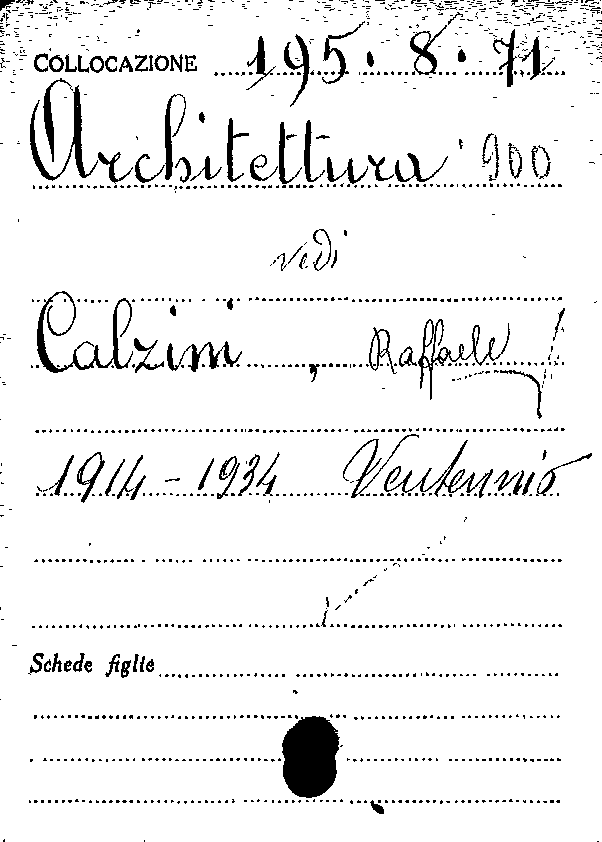 COLLOCAZIONE 195.8.71
Architettura '900
vedi
Calzini, Raffaele
1914-1934 Ventennio
Schede figlie